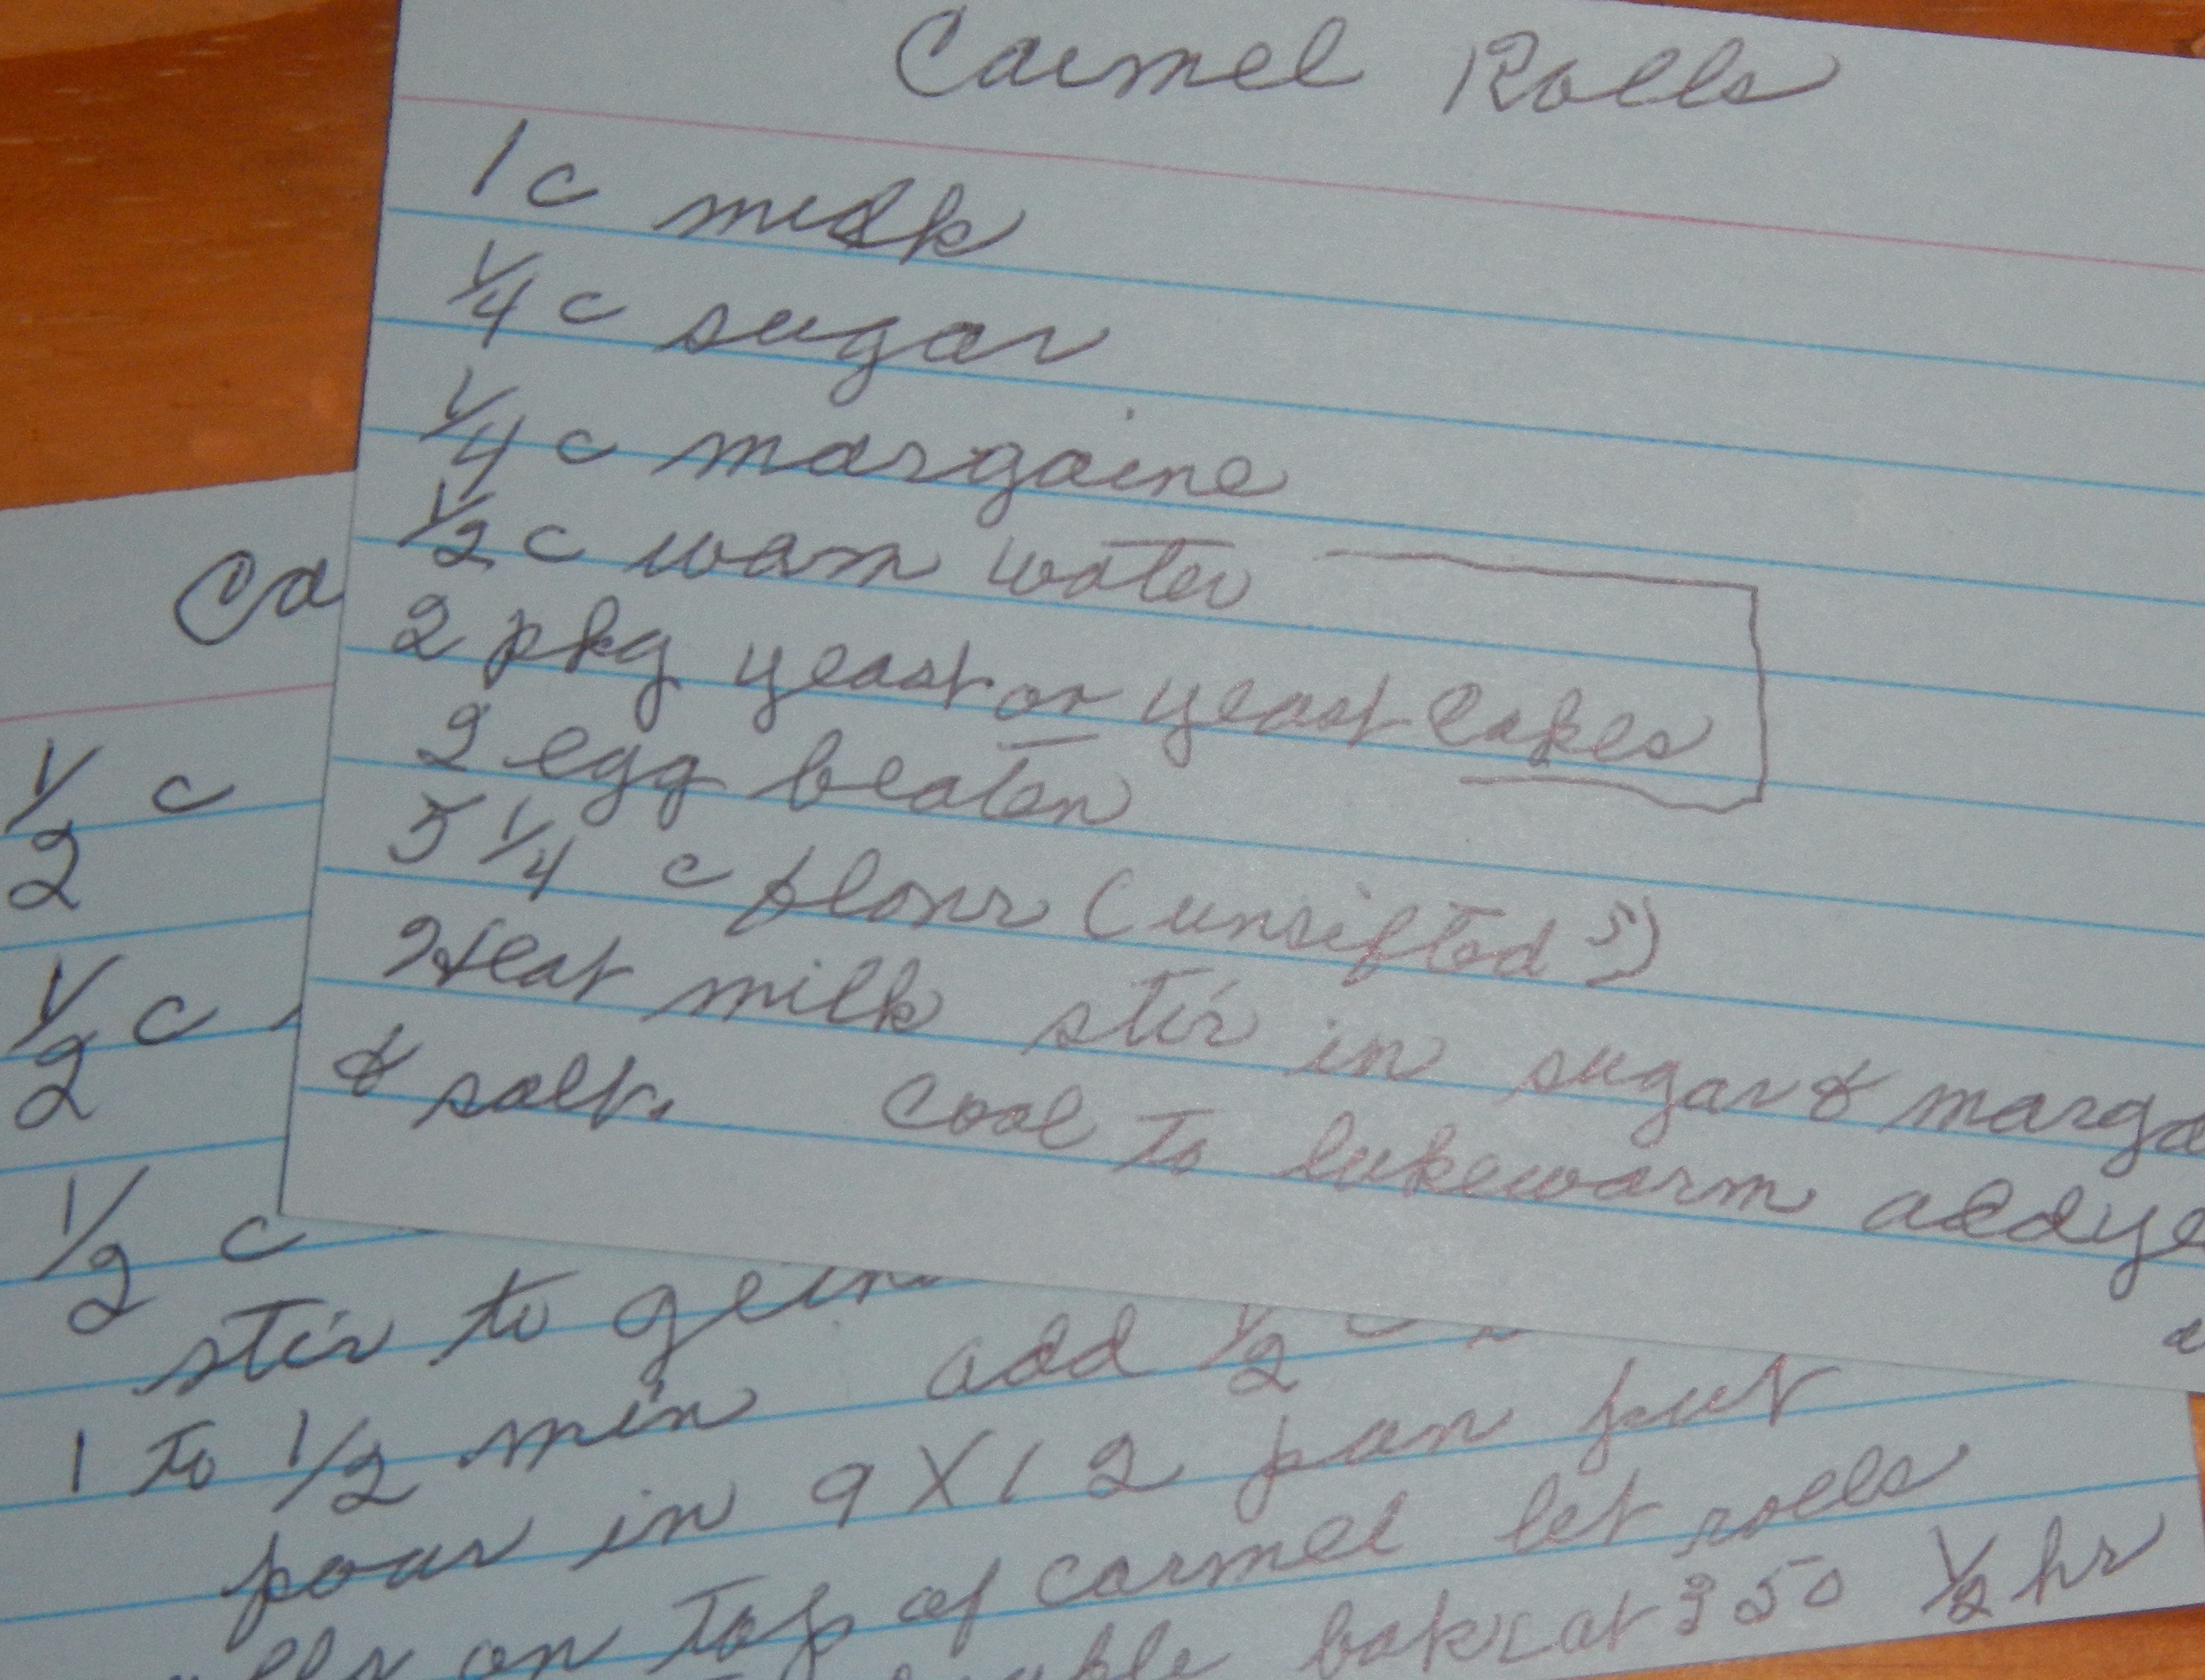 Carmel Rolls
1 c milk
1/4 c sugar
1/4 c margaine
1/2 c warm water
2 pkg yeast or yeast cakes
2 egg beaten
5 1/4 c flour (unsifted)
Heat milk stir in sugar & marga
& salt. Cool to lukewarm add ye
Ca
1/2 c
1/2 c
1/2 c
stir to
1 to 1/2 min add 1/2 c
pour in 9 X 12 pan put
on top of carmel let rolls
bake at 350 1/2 hr